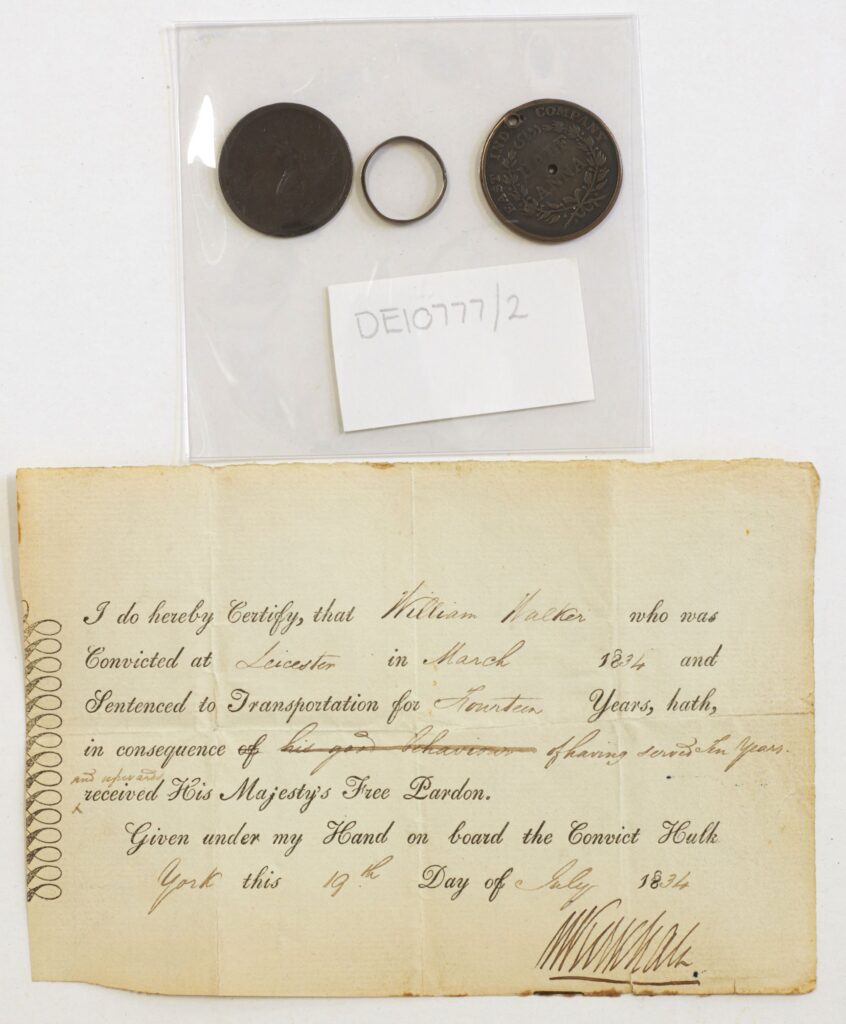 EAST INDIA COMPANY
ANNA
DE10777/2
I do hereby Certify, that William Walker who was
Convicted at Leicester in March 1834 and
Sentenced to Transportation for Fourteen Years, hath,
in consequence of his good behaviour of having served Ten Years.
and upwards
received His Majesty's Free Pardon.
Given under my Hand on board the Convict Hulk
York this 19th Day of July 1834